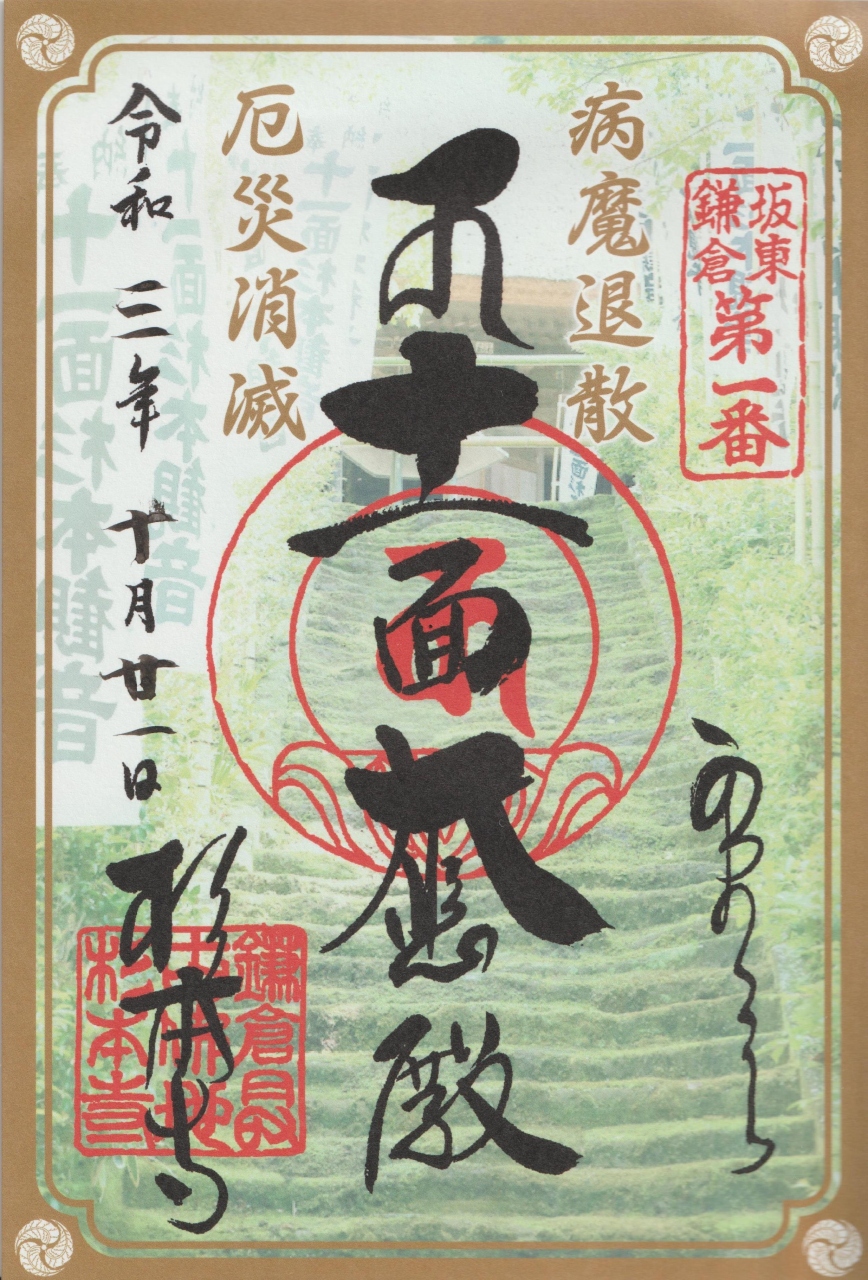 坂東
鎌倉
第一番
病魔退散
十一面大悲殿
厄災消滅
令和三年十月廿一日
杉本寺
鎌倉
杉本寺
十一面杉本観音
十一面杉本観音